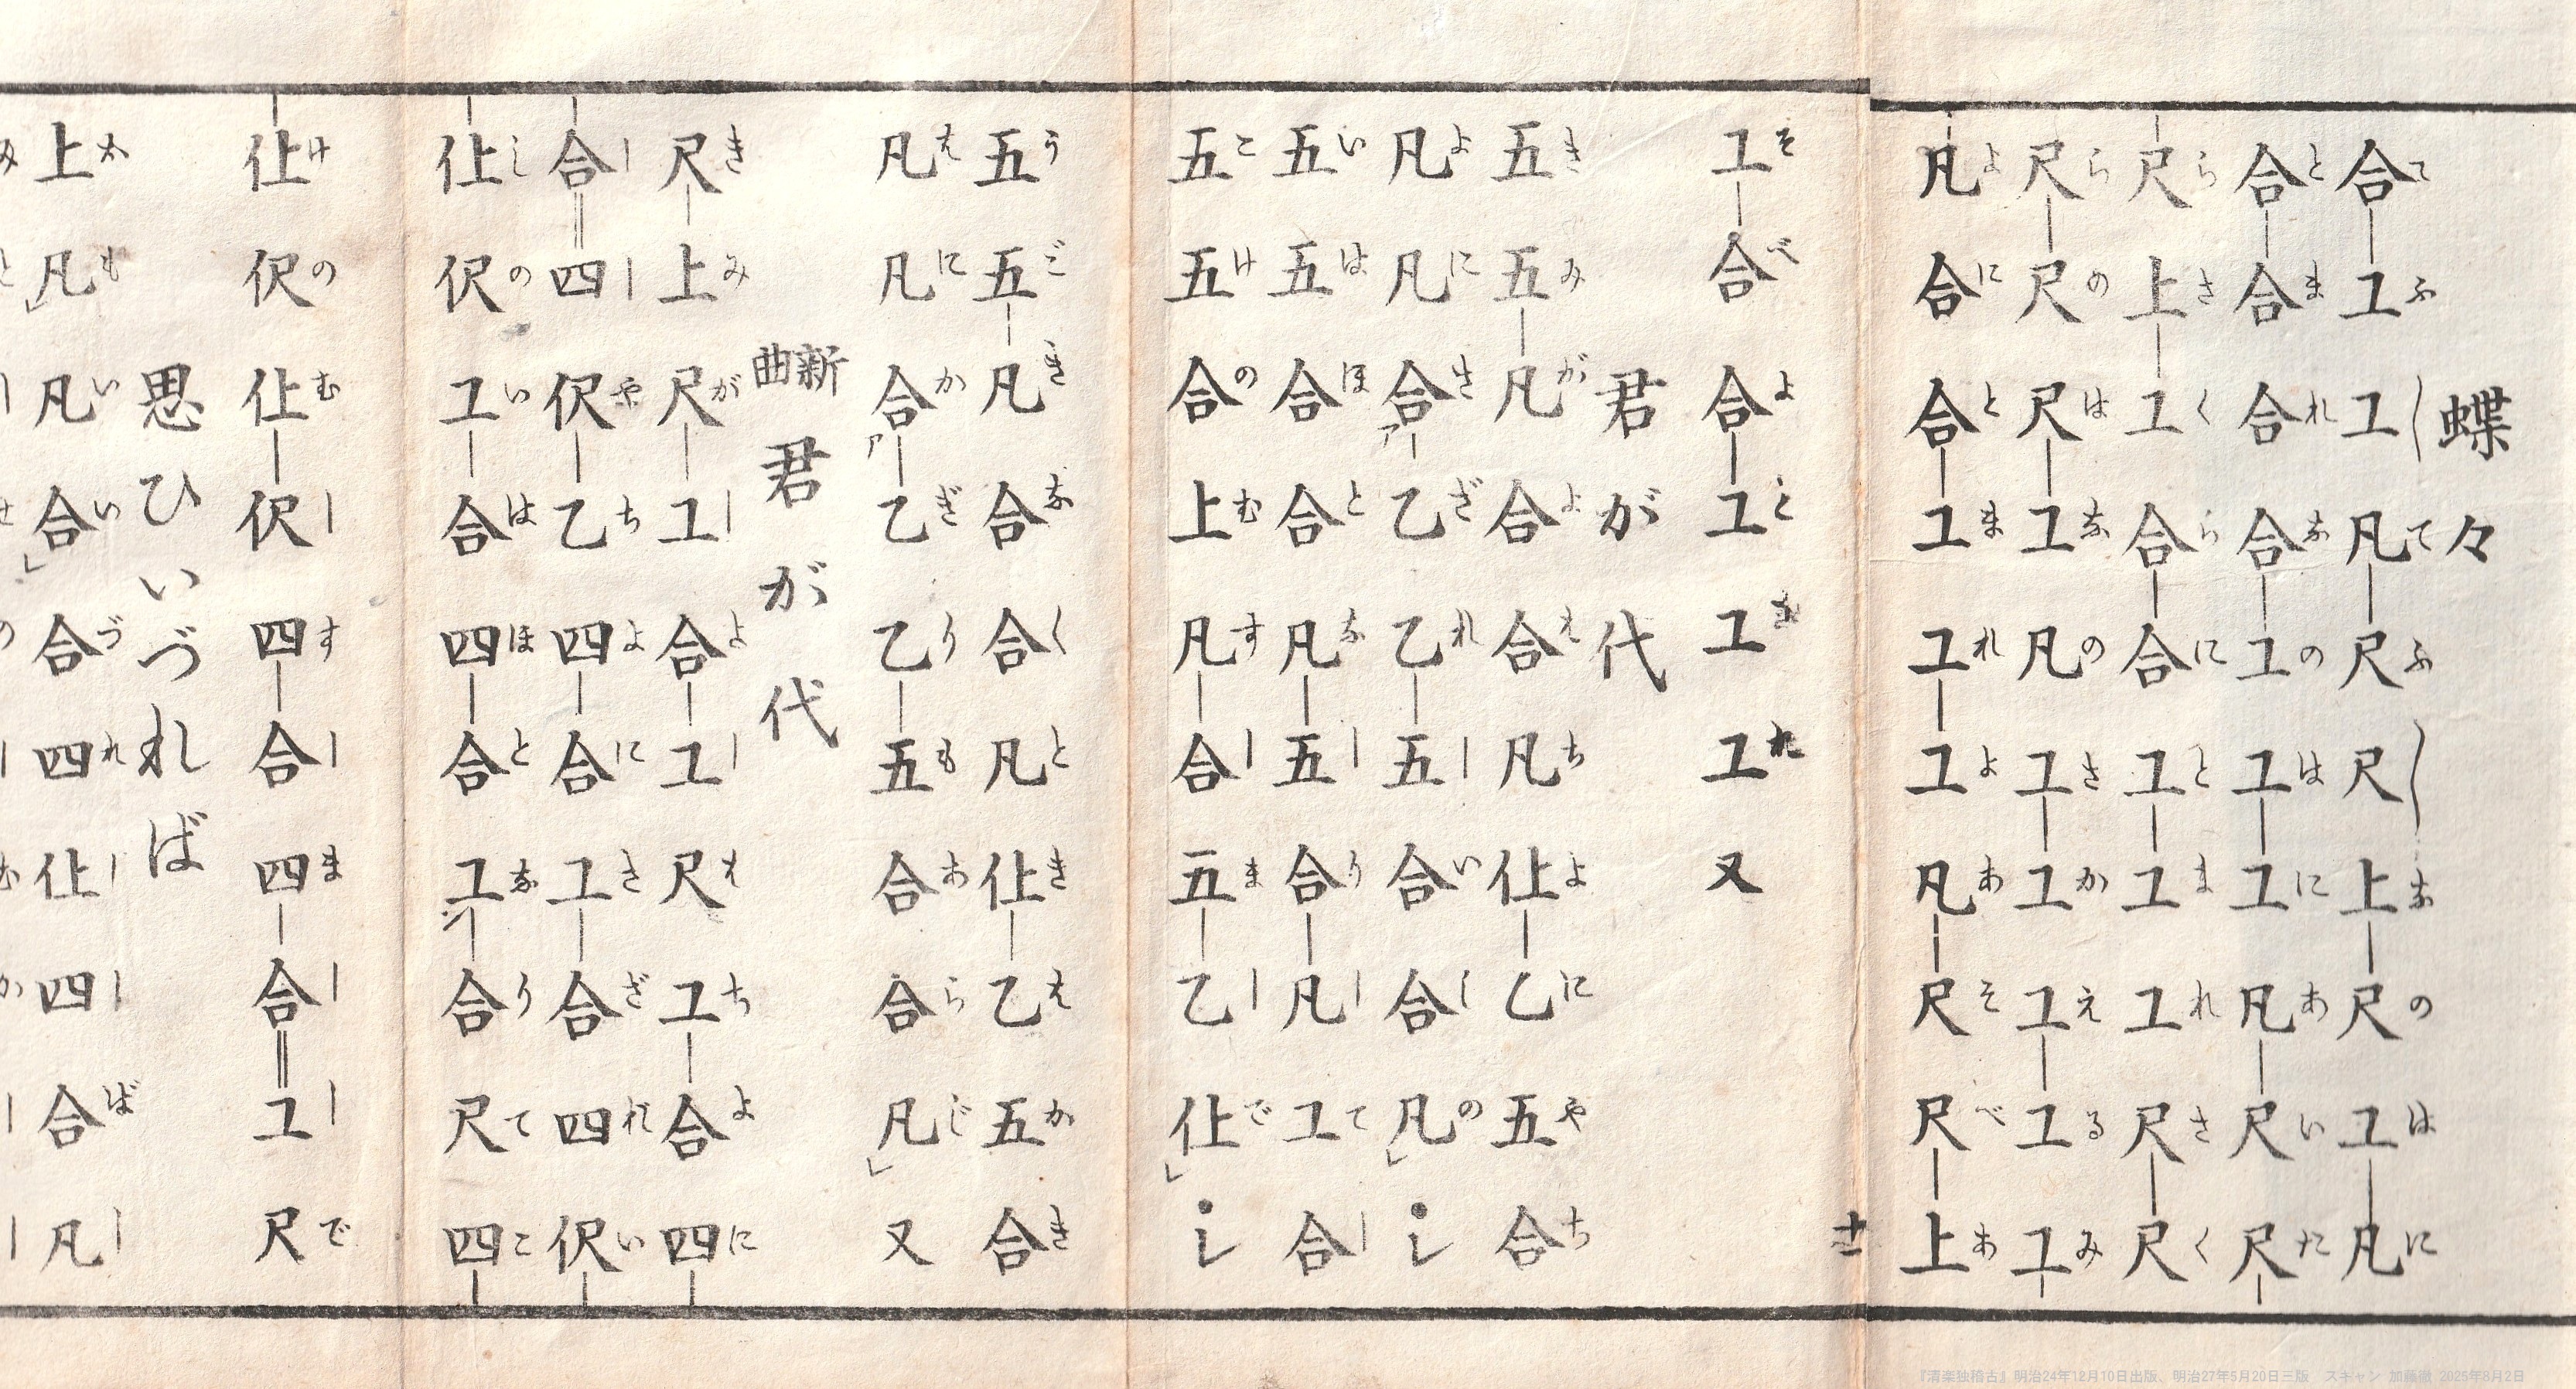 蝶々
合工工凡尺尺上尺工凡
てふ〳〵てふ〳〵なのはに
合合合合工工工凡尺尺
とまれなのはにあいた
尺上工合合工工工尺尺
らさくらにとまれさく
尺尺尺工凡工工工工工
らのはなのさかえるみ
凡合合工工工凡尺尺上
よにとまれよあそべあ
工合合工工工又
そべよとまれ
君が代
五五凡合合凡仩乙五合
きみがよえちよにやち
凡凡合乙乙五合合凡
よにさざれーいしの
五五合合凡五合凡工合
いはほとなーりーてー
五五合上凡合五乙仩
こけのむすーまーで
五五凡合合凡仩乙五合
うごきなくときえかき
凡凡合乙乙五合合凡又
えにかぎりもあらじ
新曲 君が代
尺上尺工合工尺工合四
きみがーよーえちよに
合四伬乙四合工合四伬
ーーやちよにさざれい
仩伬工合四合工合尺四
しのいはほとなりてこ
仩伬仩伬四合四合工尺
けのむーすーまーーで
思ひいづれば
上凡凡合合四仩四合凡
おもいいづれーーばー
『清楽独稽古』明治24年12月10日出版、明治27年5月20日三版 スキャン 加藤徹 2025年8月2日